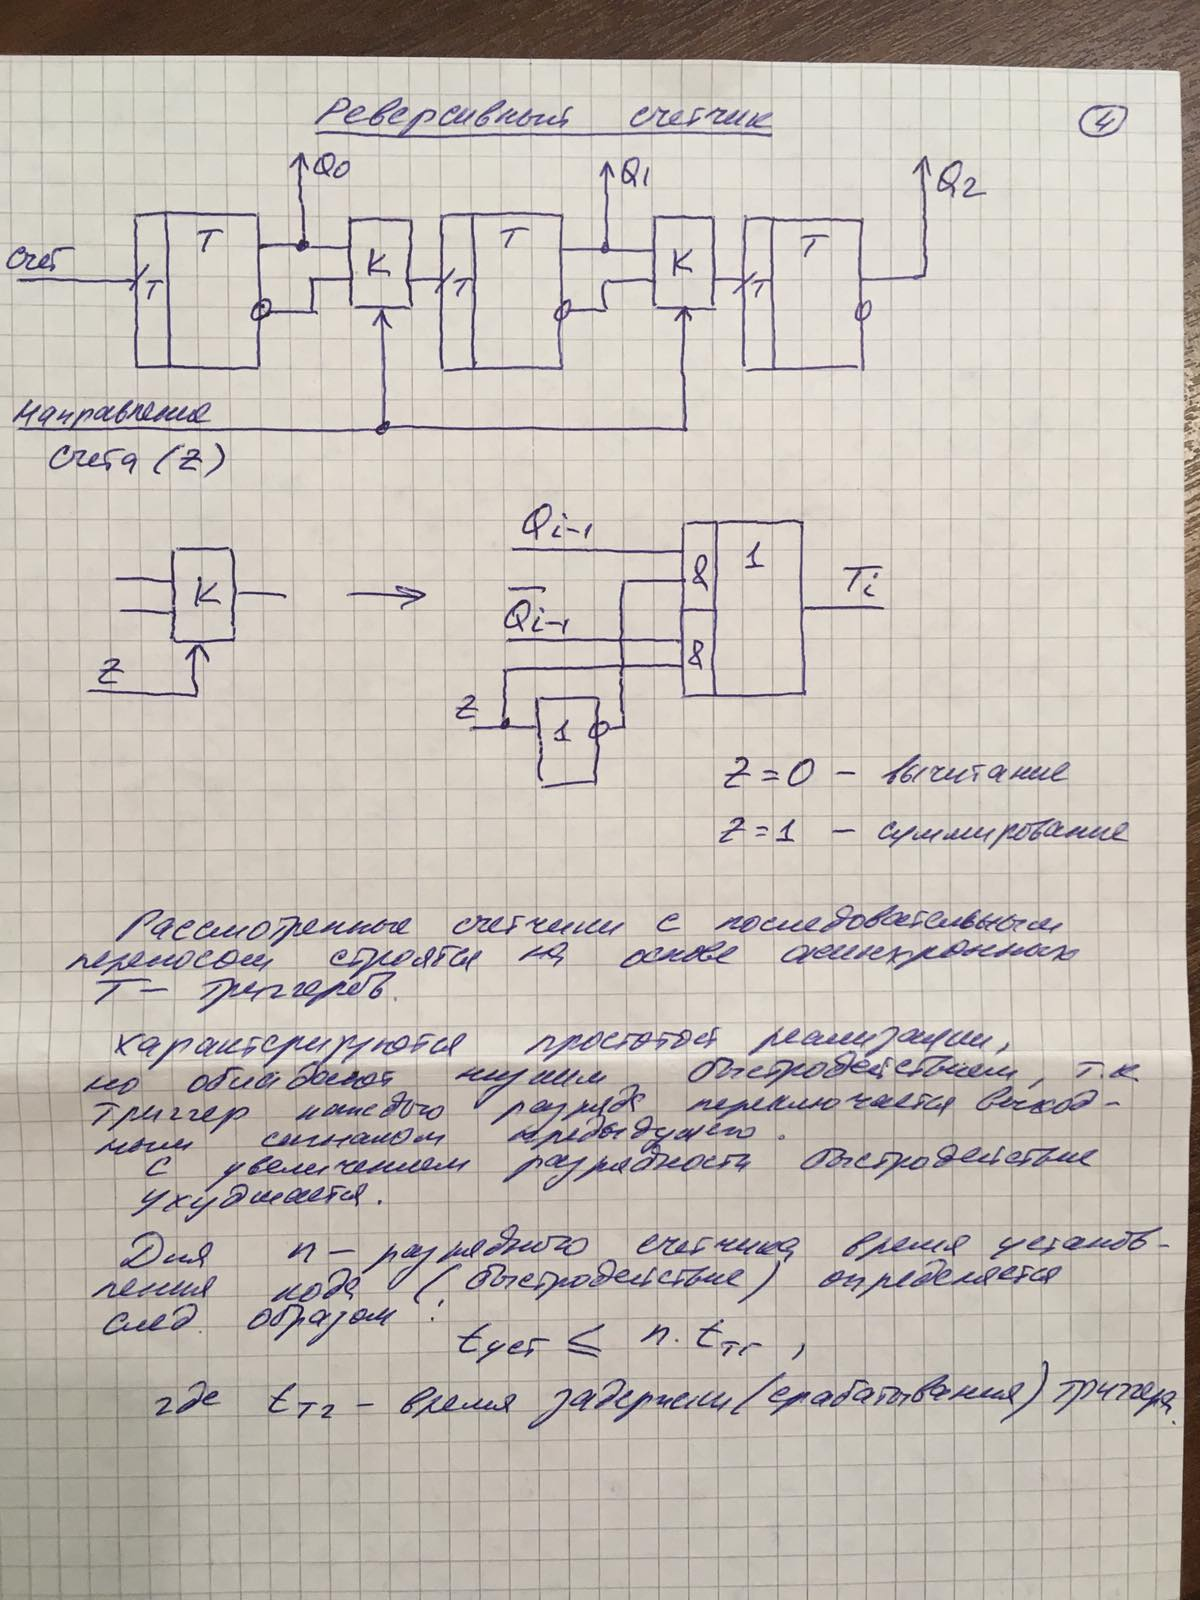 Реверсивный счетчик
4
Q0
Q1
Q2
Счет
T
T
K
T
T
K
T
T
Направление
счета (Z)
K
Z
Qi-1
Q̅i-1
Z
&
&
1
1
Ti
Z = 0 – вычитание
Z = 1 – суммирование
Рассмотренные счетчики с последовательным
переносом строятся на основе асинхронных
Т – триггеров.
Характеризуются простотой реализации,
но обладают низким быстродействием, т.к
триггер каждого разряда переключается выход-
ным сигналом предыдущего.
С увеличением разрядности быстродействие
ухудшается.
Для n – разрядного счетчика время установ-
ления кода (быстродействие) определяется
след. образом :
tуст ≤ n · tтг ,
где tтг – время задержки (срабатывания) триггера.